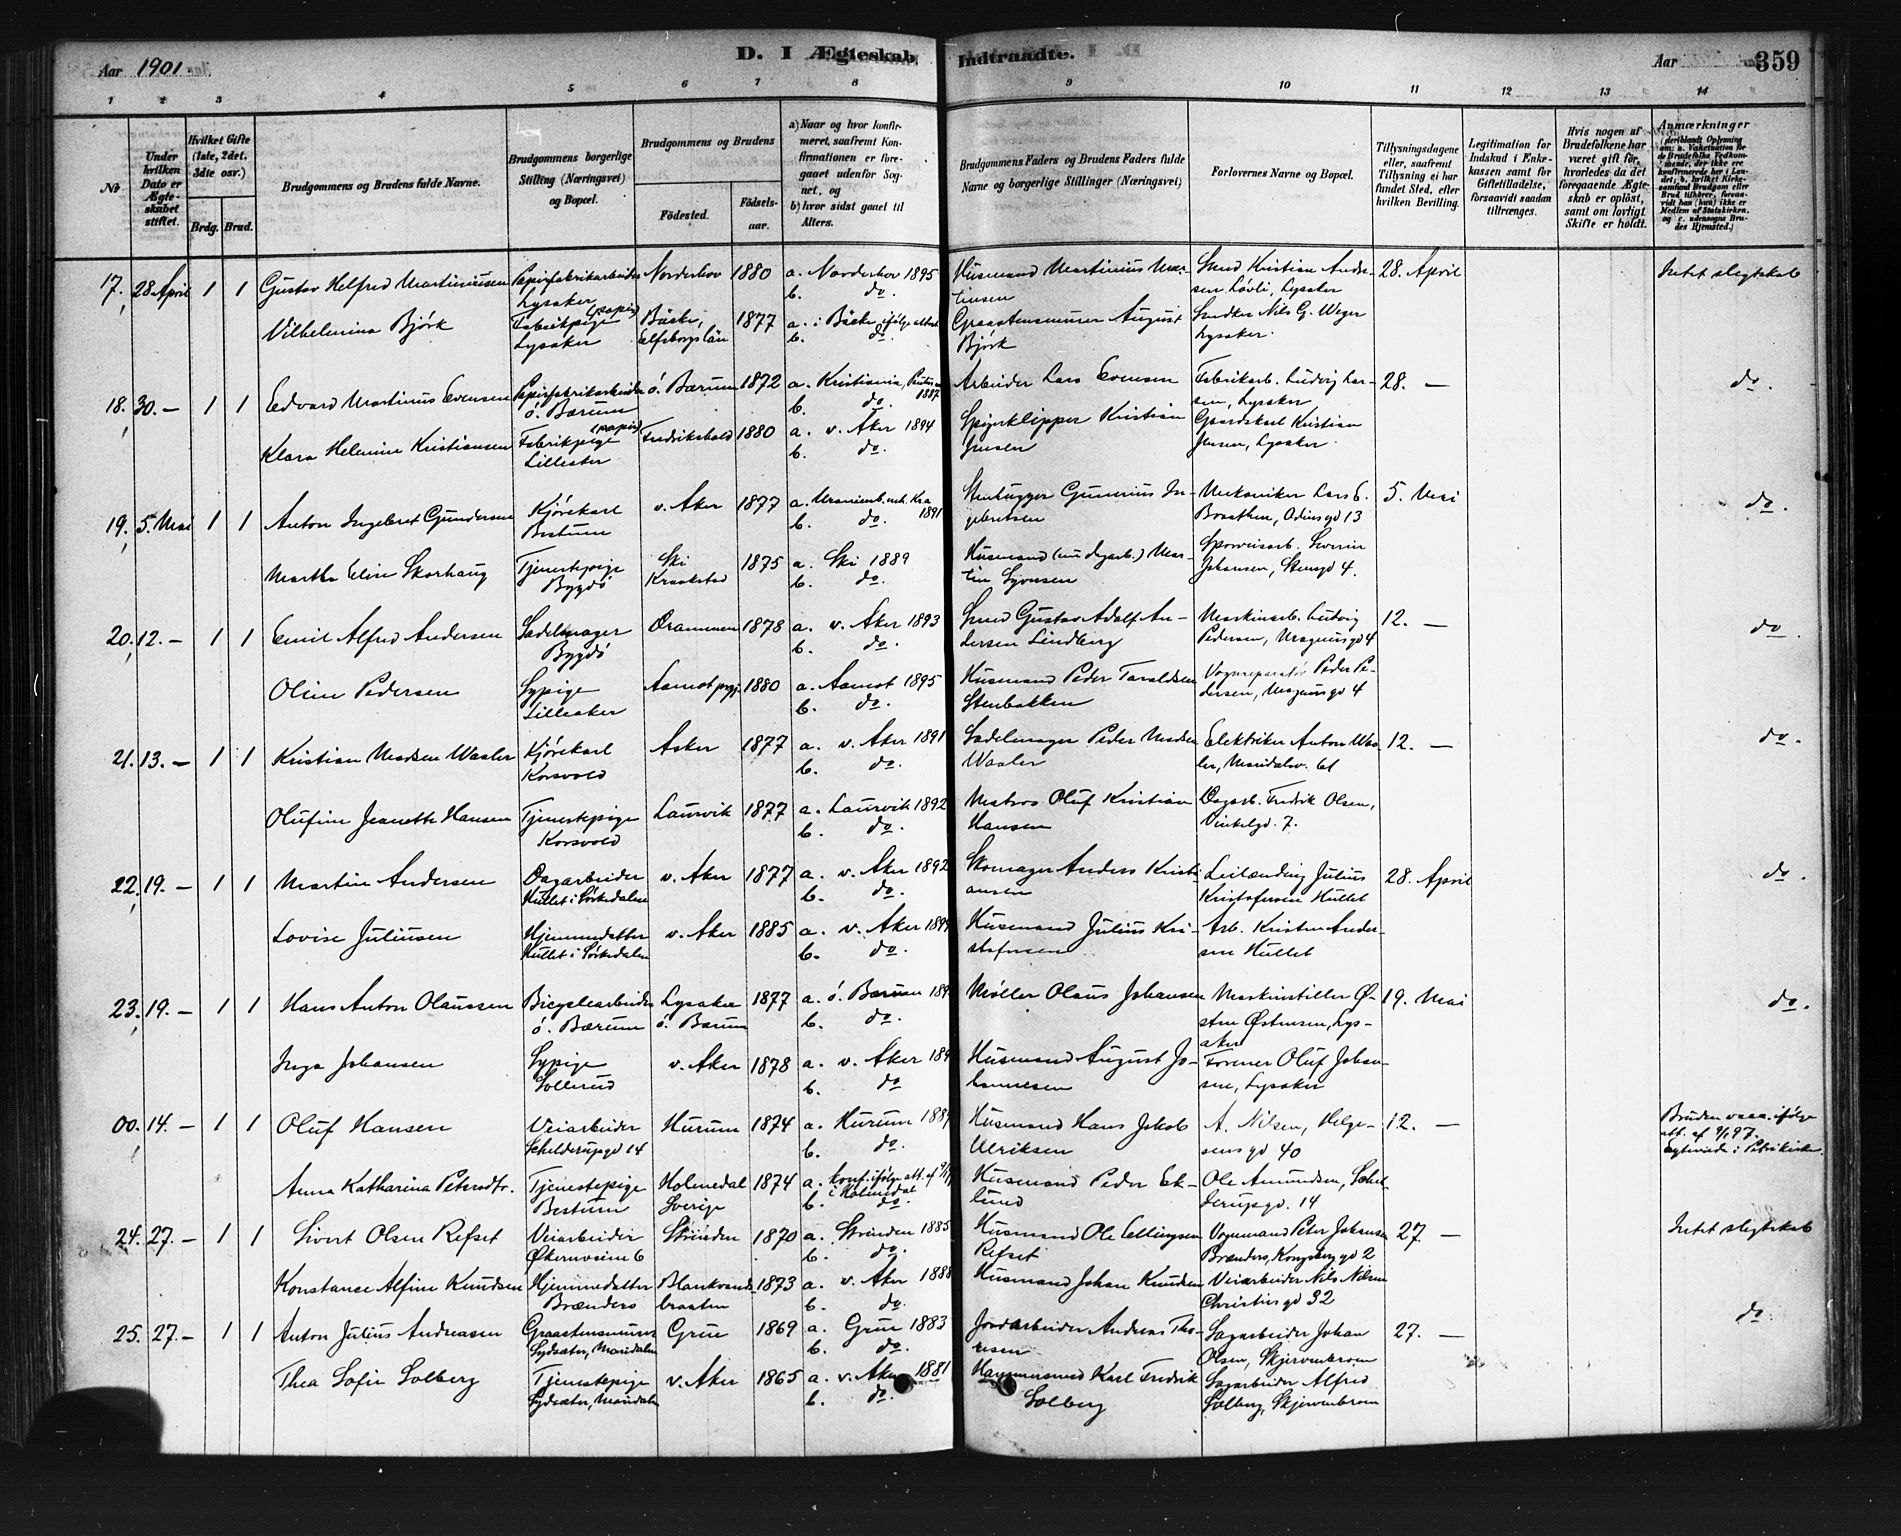 Aar 1901
D. I Ægteskab
Indtraadte.
Aar
359
1 2 3 4 5 6 7 8 9 10 11 12 13 14
No
Under hvilken Dato er Ægteskabet stiftet.
Hvilket Gifte (1ste, 2det, 3die osv.)
Brdg. Brud.
Brudgommens og Brudens fulde Navne.
Brudgommens borgerlige Stilling (Næringsvei) og Bopæl.
Brudgommens og Brudens
Fødested.
Fødselsaar.
a) Naar og hvor konfirmeret, saafremt Konfirmationen er foregaaet udenfor Sognet, og
b) hvor sidst gaaet til Alters.
Brudgommens Faders og Brudens Faders fulde Navne og borgerlige Stillinger (Næringsvei)
Forlovernes Navne og Bopæl.
Tillysningsdagene eller, saafremt Tillysning ei har fundet Sted, efter hvilken Bevilling.
Legitimation for Indskud i Enkekassen samt for Giftetilladelse, forsaavidt saadan tiltrænges.
Hvis nogen af Brudefolkene har været gift før, hvorledes da det foregaaende Ægteskab er opløst, samt om lovligt Skifte er holdt.
Anmærkninger
17, 28 April 1 1 Gustav Helfred Martiniussen Papirfabrikarbeider Lysaker Norderhov 1880 a. Norderhov 1895 b. do. Husmand Martinius Martinsen Smed Kristian Andresen Løvli, Lysaker 28. April Intet slegtskab
Vilhelmina Bjørk Fabrikpige (papir) Lysaker Bäcke, Elfsborgs län 1877 a. i Bäcke ifølge attest b. do. Graastensmurer August Bjørk Snedker Nils G. Weger Lysaker
18, 30. — 1 1 Edvard Martinus Evensen Papirfabrikarbeider ö. Bærum ö. Bærum 1872 a. Kristiania, 1887 b. do. Arbeider Lars Evensen Fabrikarb. Ludvig Larsen, Lysaker 28. — do.
Klara Helenine Kristiansen Fabrikpige (papir) Lilleaker Fredrikshald 1880 a. v. Aker 1894 b. do. Spigerklipper Kristian Jensen Gaardskarl Kristian Jensen, Lysaker
19, 5. Mai 1 1 Anton Ingebret Gundersen Kjørekarl Bestum v. Aker 1877 a. Uranienb. mh. Kra 1891 b. do. Stenhugger Gunerius Ingebretsen Mekaniker Lars E. Braathen, Odinsgd 13 5. Mai do.
Marthe Eline Skorhaug Tjenestepige Bygdö Ski Kraakstad 1875 a. Ski 1889 b. do. Husmand (nu dagarb.) Martin Syversen Sporveisarb. Sverin Johansen, Stensgd 4.
20, 12. — 1 1 Emil Alfred Andersen Sadelmager Bygdö Drammen 1878 a. v. Aker 1893 b. do. Smed Gustav Adolf Andersen Lindberg Maskinarb. Ludvig Pedersen, Magnusgd 4 12. — do.
Oline Pedersen Sypige Lilleaker Aamot prgj. 1880 a. Aamot 1895 b. do. Husmand Peder Taraldsen Stenbakken Vognreparatør Peder Pedersen, Magnusgd 4
21. 13. — 1 1 Kristian Madsen Waaler Kjørekarl Korsvold Asker 1877 a. v. Aker 1891 b. do. Sadelmager Peder Madsen Waaler Elektriker Anton Waaler, Maridalsv. 61 12. — do.
Olufine Jeanette Hansen Tjenestepige Korsvold Laurvik 1877 a. Laurvik 1892 b. do. Matros Oluf Kristian Hansen Dagarb. Fredrik Olsen, Vinkelgd. 7.
22, 19. — 1 1 Martin Andersen Dagarbeider Hullet i Sörkedalen v. Aker 1877 a. v. Aker 1892 b. do. Skomager Anders Kristiansen Leilænding Julius Kristofersen Hullet 28. April do.
Lovise Juliusen Hjemmedatter Hullet i Sörkedalen v. Aker 1885 a. v. Aker b. do. Husmand Julius Kristofersen Arb. Kristen Andersen Hullet
23, 19. — 1 1 Hans Anton Olaussen Bicyclearbeider ö. Bærum Lysaker ö. Bærum 1877 a. ö. Bærum b. do. Møller Olaus Johansen Maskinstiller Østen Østensen, Lysaker 19. Mai do.
Inga Johansen Sypige Sollerud v. Aker 1878 a. v. Aker b. do. Husmand August Johannesen Former Oluf Johansen, Lysaker
00, 14. — 1 1 Oluf Hansen Veiarbeider Schelderupsgd 14 Hurum 1874 a. Hurum b. do. Husmand Hans Jakob Ulriksen A. Nilsen, Helgesensgd 40 12. — Bruden vacc. ifølge att. af Egteviede i Petrikirke
Anna Katharina Petersdtr. Tjenestepige Bestum Holmedal Sverige 1874 a. konf. ifølge att. af i Holmedal b. do. Husmand Peder Eklund Ole Amundsen, Schelderupsgd. 14
24. 27. — 1 1 Sivert Olsen Refset Veiarbeider Økernveien 6 Strinden 1870 a. Strinden 1885 b. do. Husmand Ole Ellingsen Refset Vognmand Peter Johansen Brænders, Kongsberggd 2 27. — Intet slegtskab
Konstance Alfine Knudsen Hjemmedatter Brænders Blankvandsbraaten 1873 a. v. Aker 1888 b. do. Husmand Johan Knudsen Veiarbeider Nils Nilsen Christiesgd 32
25. 27. — 1 1 Anton Julius Andreasen Graastensmurer Sydsæter, Maridalen Grue 1869 a. Grue 1883 b. do. Jordarbeider Andreas Thoresen Sagarbeider Johan Olsen, Skjervenbroen 27. — do.
Thea Sofie Solberg Tjenestepige Sydsæter, Maridalen v. Aker 1865 a. v. Aker 1881 b. do. Hammersmed Karl Fredrik Solberg Sagarbeider Alfred Solberg, Skjervenbroen